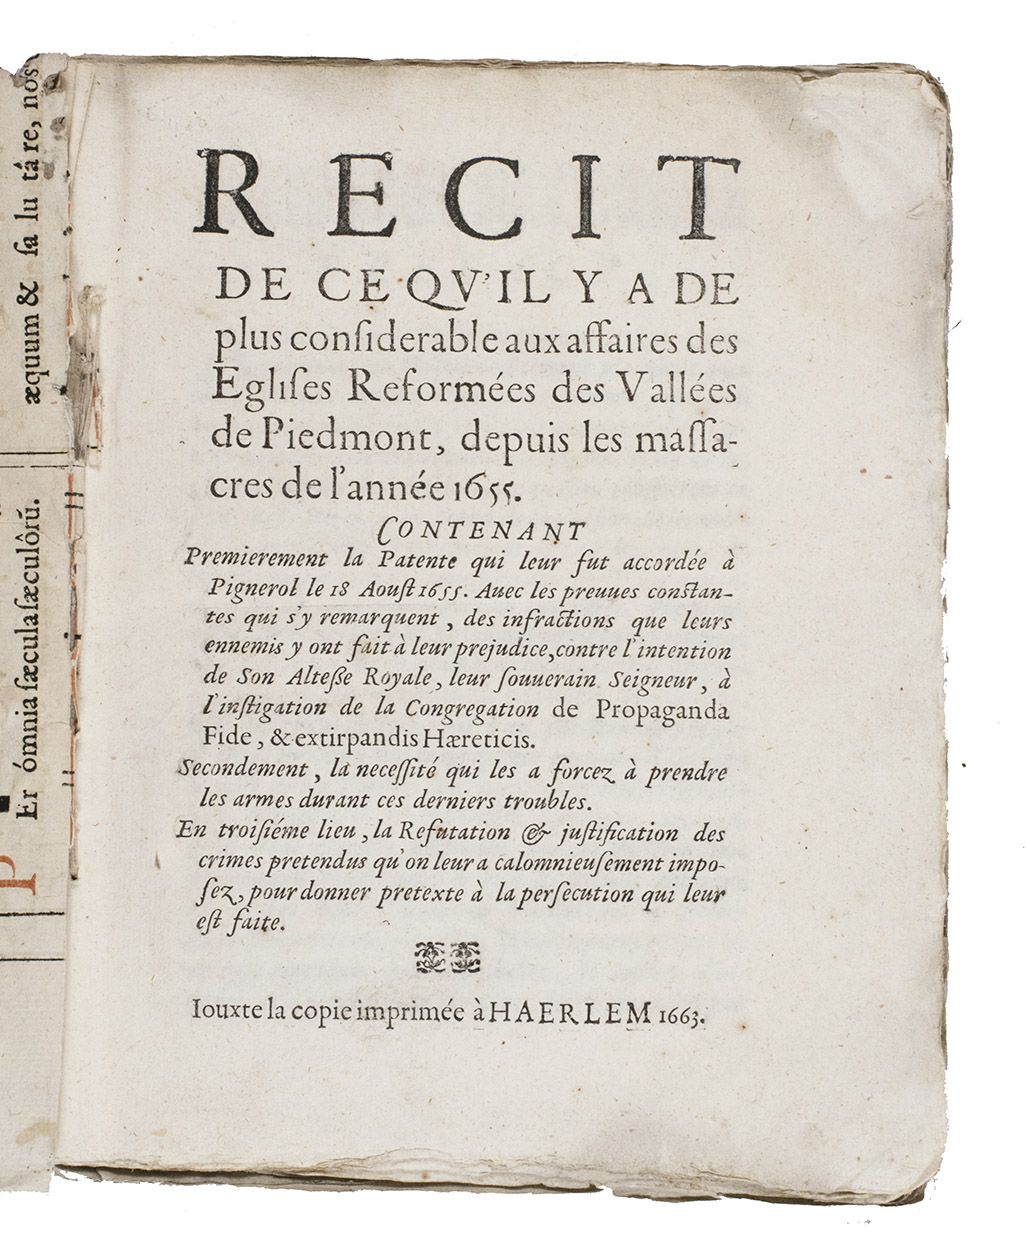 RECIT
DE CE QV'IL Y A DE
plus conſiderable aux affaires des
Egliſes Reformées des Vallées
de Piedmont, depuis les maſſa-
cres de l'année 1655.
CONTENANT
Premierement la Patente qui leur fut accordée à
Pignerol le 18 Aouſt 1655. Auec les preuues conſtan-
tes qui s'y remarquent, des infractions que leurs
ennemis y ont fait à leur prejudice, contre l'intention
de Son Alteſſe Royale, leur ſouuerain Seigneur, à
l'inſtigation de la Congregation de Propaganda
Fide, & extirpandis Hæreticis.
Secondement, la neceſſité qui les a forcez à prendre
les armes durant ces derniers troubles.
En troiſiéme lieu, la Refutation & juſtification des
crimes pretendus qu'on leur a calomnieuſement impo-
ſez, pour donner pretexte à la perſecution qui leur
eſt faite.
Iouxte la copie imprimée à HAERLEM 1663.
æquum & ſa lu tá re, nos
Er ómnia ſæcula ſæculôrú.
P